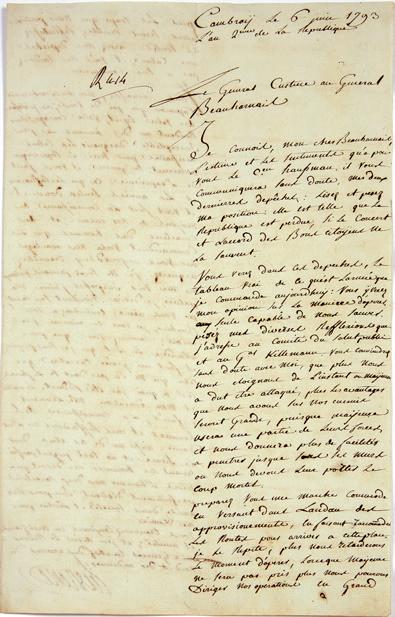 Cambray le 6 juin 1793
L'an 2me de la Republique
Le General Custine au General
Beauharnais
Je Connois, mon cher Beauharnais,
L'estime et les sentiments qu'a pour
vous le Cen Kauffman, il vous
Communiquera sans doute, mes deux
dernieres depeches: Lisez et pesez
ma position: elle est telle que la
Republique est perdue, si le Concert
et L'accord des Bons citoyens ne
la sauvent.
Vous verez dans ces depeches, le
tableau vrai de ce qu'est L'armée que
je Commande aujourdhuy: Vous y verez
mon opinion sur la maniere
seule capable de nous sauver.
pesez mes diverses Reflexions que
j'adresse au Comité du Salut public
et au Gal Kellemann. Vous conviendrez
sans doute avec moi, que plus nous
nous eloignons de L'instant ou mayence
a dut être attaqué, plus les avantages
que nous avons sur nos ennemis
seront Grands, puisque mayence
usera une partie de leurs forces,
et nous donnera plus de facilités
a penetrer jusque sous les murs
ou nous devons leur porter le
Coup mortel.
preparez vous une marche Commode
en versant dans Landau des
approvisionements, en faisant
les Routes pour arriver a cette place.
je le Repete, plus nous retarderons
le moment d'agir, Lorsque mayence
ne sera pas pris plus nous pourrons
Diriger nos operations en Grand